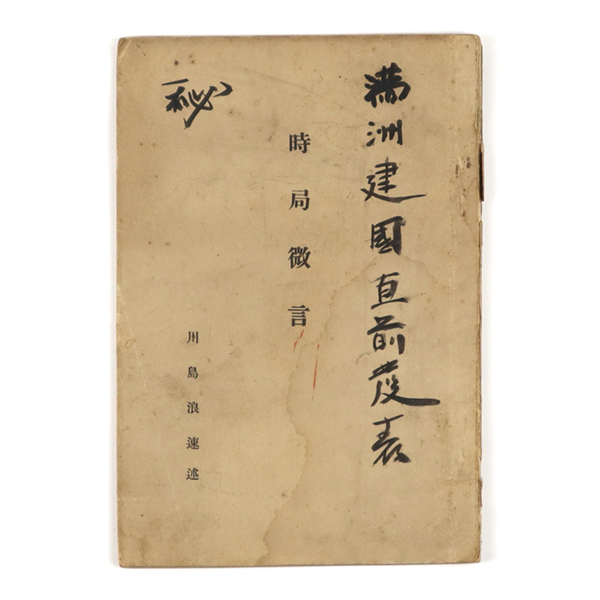 満洲建國直前発表
秘
時局微言
川島浪速述